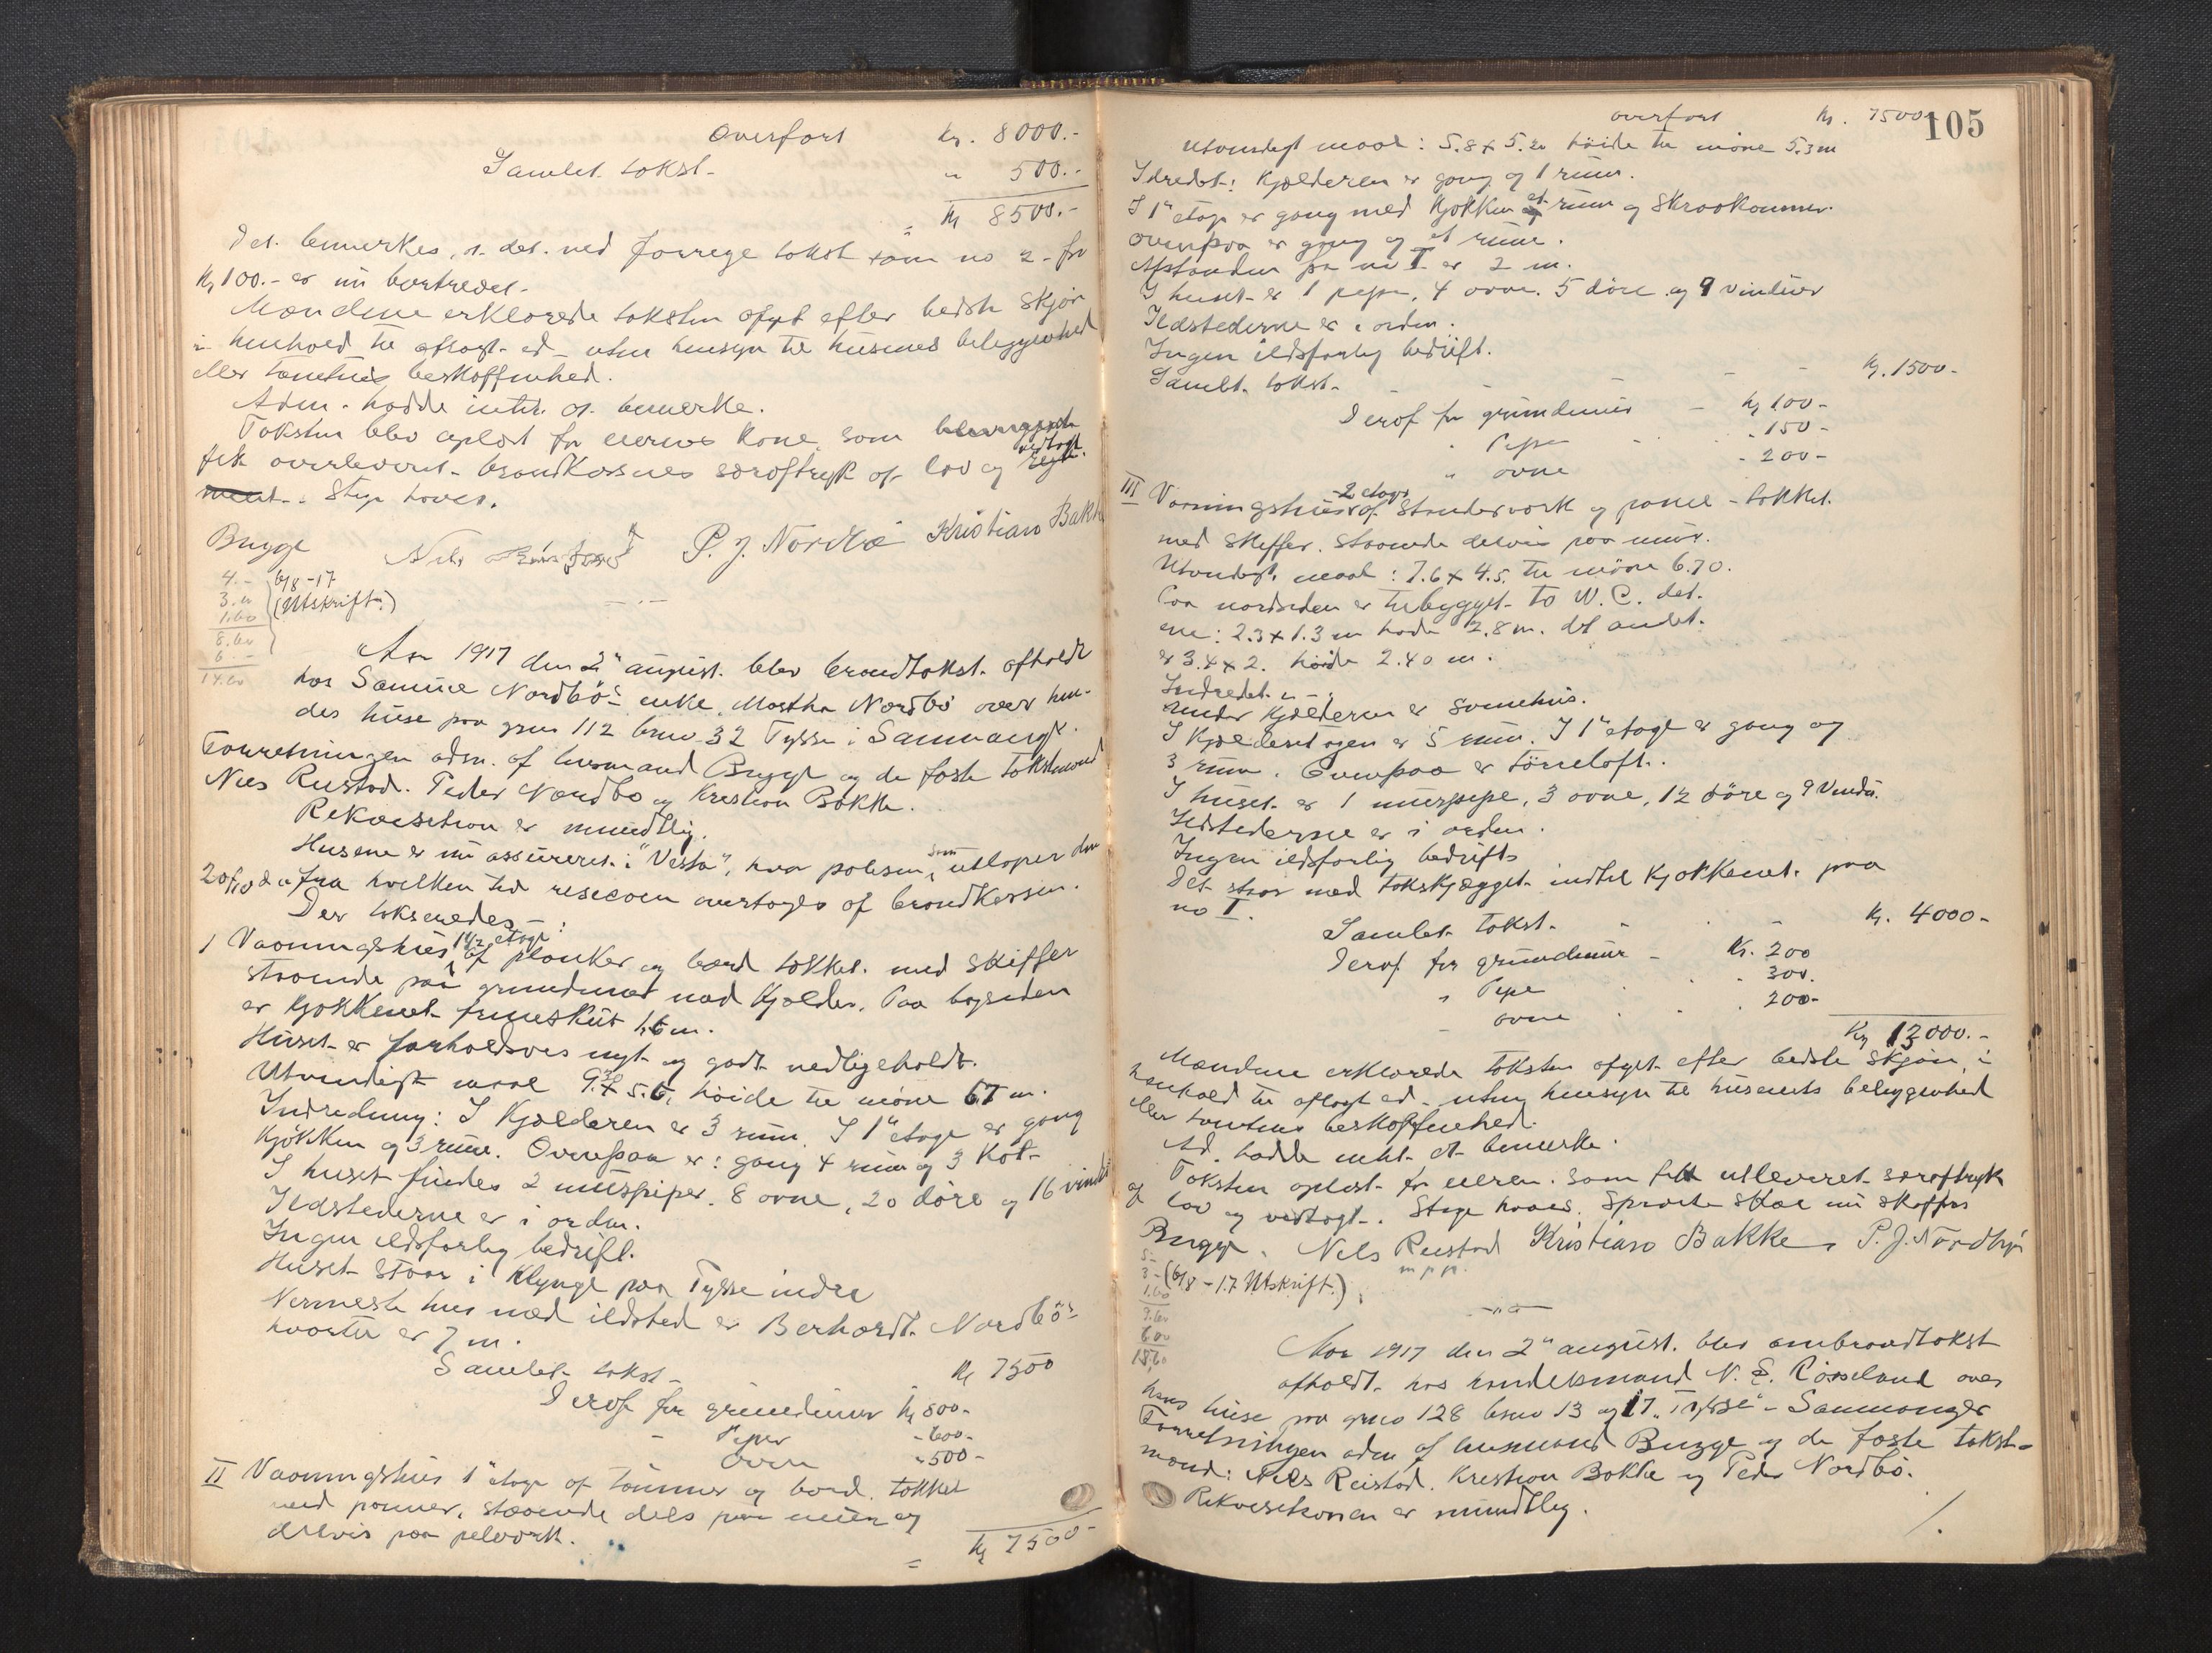 Overført Kr. 8000.-
Samlet takst - " 500.-
= Kr 8500.-
Det bemerkes, at det ved forrige takst som no 2 - for
Kr 100.- er nu bortrevet.
Mændene erklærede taksten afgit efter bedste skjøn
i henhold til aflagt ed - uten hensyn til husenes beliggenhed
eller tomtens beskaffenhed.
Adm. hadde intet at bemerke.
Taksten blev oplæst for eierens kone, som
fik overleveret brandkassens særaftryk af lov og vedtægt.
Stige haves.
Bugge Nils P. J. Nordbø Kristian Bakke
4.- 6/8-17
3.- (Utskrift.)
1.60
8.60
6 -
14.60
Aar 1917 den 2" august blev brandtakst afholdt
hos Samuel Nordbö's enke, Martha Nordbö over hen-
des huse paa gno 112 bno 32 Tysse i Samnanger.
Forretningen adm. af lensmand Bugge og de faste takstmænd
Nils Reistad. Peder Nordbø og Kristian Bakke.
Rekvisition er mundtlig.
Husene er nu assureret i "Vesta", hvor polisen, som utløper den
20/10 d a fra hvilken tid risicoen overtages af brandkassen.
Der takseredes:
I Vaaningshus, 1 1/2 etage af planker og bord tækket med skiffer
staaende paa grundmur med Kjælder. Paa bagsiden
er Kjøkkenet fremskut 1,6 m.
Huset er forholdsvis nyt og godt vedligeholdt.
Utvendigt maal 9.8 x 5.6, høide til møne 6.7 m.
Indredning: I Kjælderen er 3 rum. I 1" etage er gang
Kjøkken og 3 rum. Ovenpaa er: gang 4 rum og 3 Kot-
I huset findes 2 murpiper. 8 ovne, 20 døre og 16 vinduer
Ildstederne er i orden.
Ingen ildsfarlig bedrift.
Huset staar i Klynge paa Tysse indre
Nermeste hus med ildsted er Berhardt Nordbö's
hvortil er 7 m.
Samlet takst - Kr 7500
Deraf for grundmur Kr 800-
" Piper - 600-
Ovne " 500-
II Vaaningshus 1" etage af tømmer og bord. tækket
med panner, staaende dels paa mur og
delvis paa pelverk.
= Kr 7500-
105
overført Kr. 7500
utvendigt maal: 5.8 x 5.20 høide til møne 5.3 m
Idredet: Kjælderen er gang og 1 rum.
I 1" etage er gang med Kjøkken et rum og Skraakammer.
ovenpaa er gang og et rum.
Afstanden fra no I er 2 m.
I huset er 1 pipe, 4 ovne. 5 døre og 9 vinduer
Ildstederne er i orden.
Ingen ildsfarlig bedrift.
Samlet takst - Kr. 1500-
Deraf for grundmur - Kr 100-
" Pipe " 150-
" ovne " 200-
III Vaaningshus 2 etages af Standerverk og panel - tækket
med skiffer. staaende delvis paa mur.
Utvendigt maal: 7.6 x 4.5. til møne 6.70.
Paa nordsiden er tilbygget to W.C. det
ene: 2.3 x 1.3 m høide 2.8 m. det andet
er 3.4 x 2. høide 2.40 m.
Indredet:
Under Kjælderen er
I Kjælderetagen er 5 rum. I 1" etage er gang og
3 rum. Ovenpaa er tørreloft.
I huset er 1 murpipe, 3 ovne, 12 døre og 9 Vinduer.
Ildstederne er i orden.
Ingen ildsfarlig bedrift
Det staar med indtil Kjøkkenet paa
no I.
Samlet takst - Kr. 4000-
Deraf for grundmur - Kr. 200
" Pipe 300.
- ovne 200-
Kr 13000.-
Mændene erklærede taksten afgit efter bedste skjøn, i
henhold til aflagt ed - uten hensyn til husenes beliggenhed
eller tomtens beskaffenhed.
Ad. hadde intet at bemerke.
Taksten oplæst for eieren. som fikk utleveret særaftryk
af lov og vedtægt. Stige haves. Sprøite skal nu skaffes
Bugge. Nils Reistad Kristian Bakke P. J. Nordbø
m p p.
5-
3- (6/8-17 Utskrift.)
1.60
9.60
6.00
15.60
Aar 1917 den 2" august. blev ombrandtakst
afholdt hos handelsmand N. S. Røsseland over
hans huse paa gno 128 bno 13 og 17 "Tysse" - Samnanger
Forretningen adm af lensmand Bugge og de faste takst-
mænd: Nils Reistad. Kristian Bakke og Peder Nordbö.
Rekvisitionen er mundtlig.